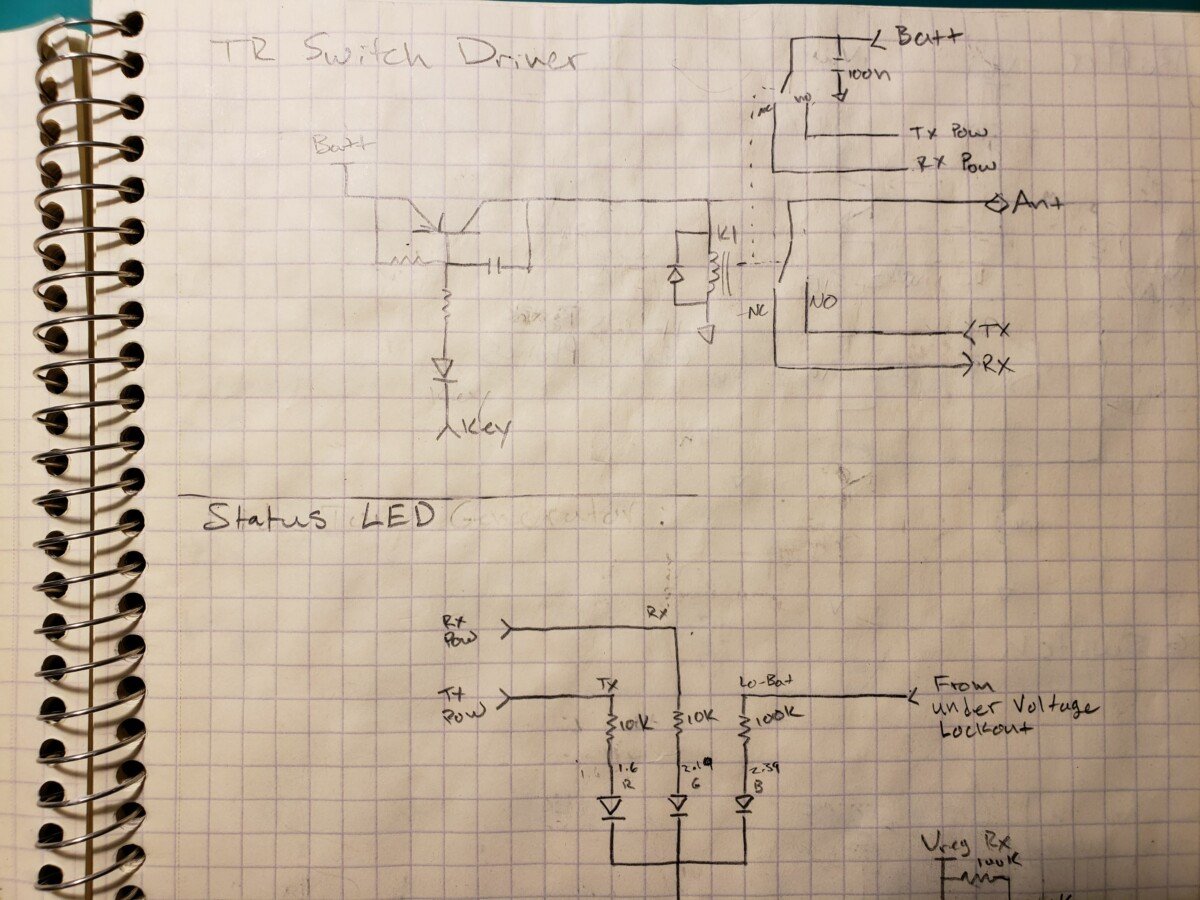 TR Switch Driver
Batt
100n
NC
NO
Tx Pow
RX Pow
Batt
Ant
K1
NC
NO
TX
RX
Key
Status LED Generator
Rx
Pow
Rx
Tx
Pow
Tx
Lo-Bat
From
under Voltage
Lockout
10K
10K
100K
1.6
R
2.19
G
2.59
B
Vreg Rx
100K